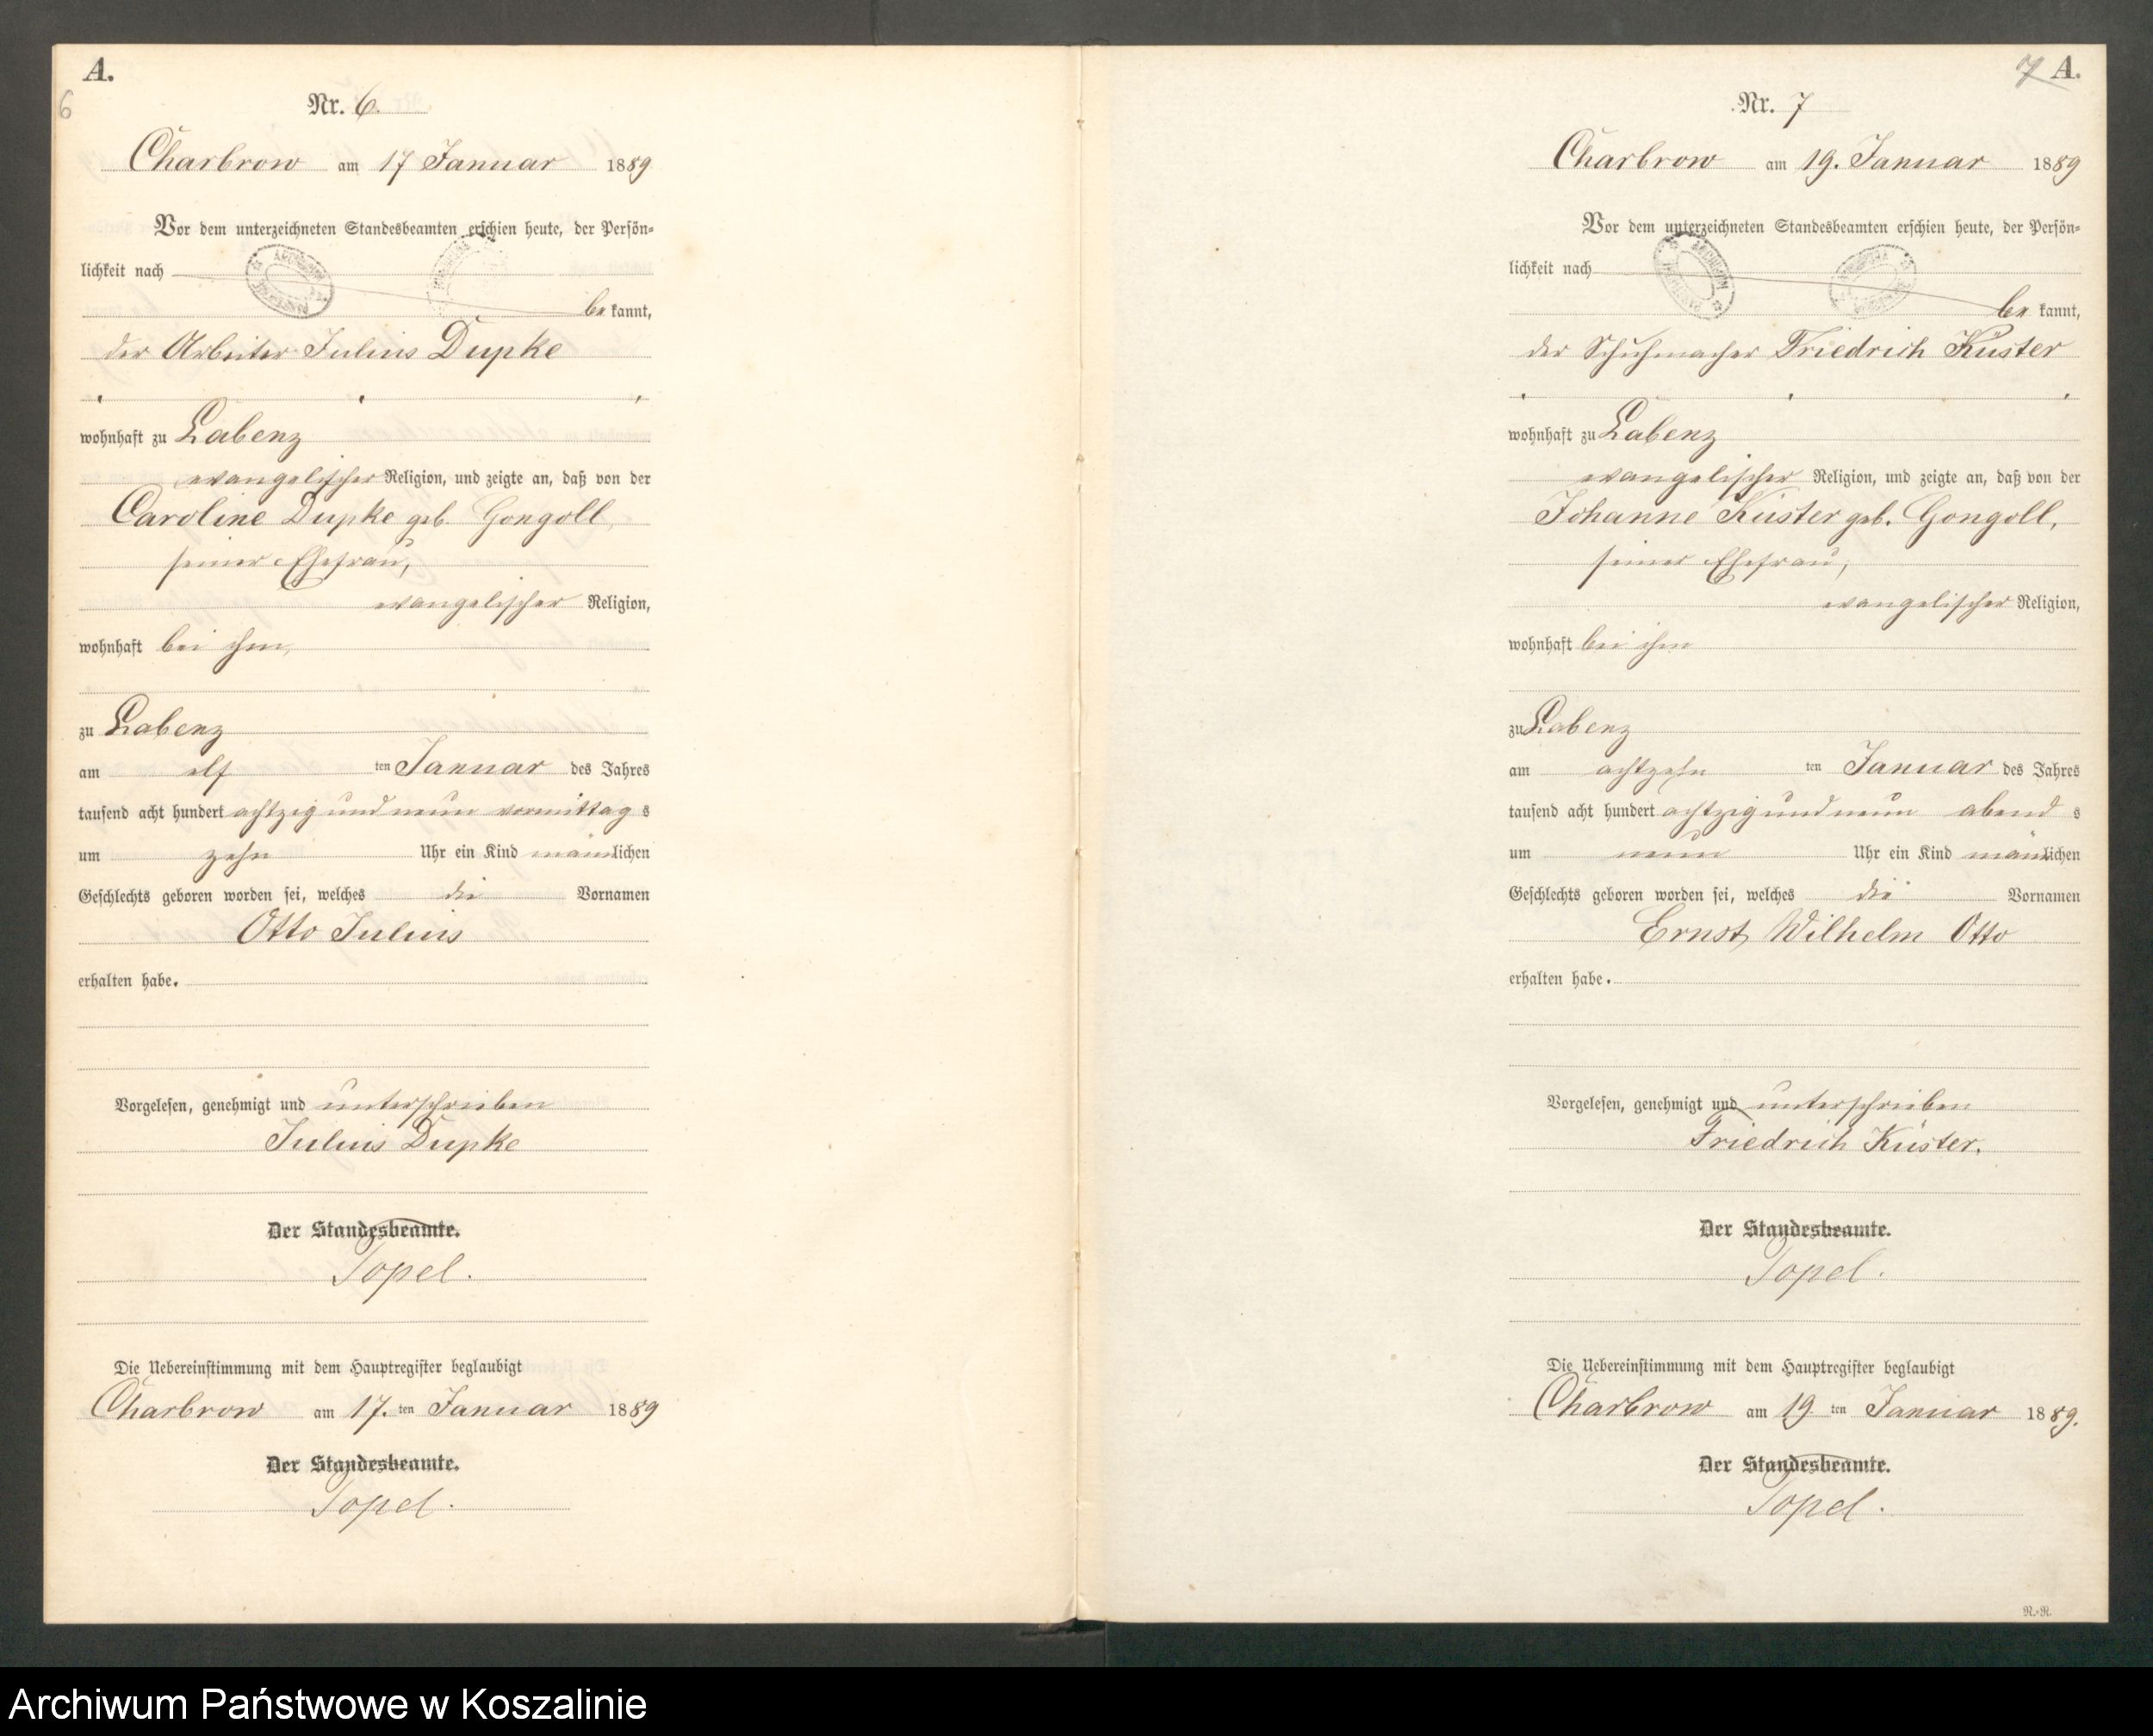 A.
6
Nr. 6.
Charbrow am 17 Januar 1889
Vor dem unterzeichneten Standesbeamten erschien heute, der Persön-
lichkeit nach
be kannt,
der Arbeiter Julius Dupke
wohnhaft zu Labenz
evangelischer Religion, und zeigte an, daß von der
Caroline Dupke geb. Gongoll,
seiner Ehefrau,
evangelischer Religion,
wohnhaft bei ihm,
zu Labenz
am elf ten Januar des Jahres
tausend acht hundert achtzig und neun vormittag s
um zehn Uhr ein Kind männlichen
Geschlechts geboren worden sei, welches die Vornamen
Otto Julius
erhalten habe.
Vorgelesen, genehmigt und unterschrieben
Julius Dupke
Der Standesbeamte.
Topel.
Die Uebereinstimmung mit dem Hauptregister beglaubigt
Charbrow am 17. ten Januar 1889
Der Standesbeamte.
Topel.
7 A.
Nr. 7
Charbrow am 19. Januar 1889
Vor dem unterzeichneten Standesbeamten erschien heute, der Persön-
lichkeit nach
be kannt,
der Schuhmacher Friedrich Küster
wohnhaft zu Labenz
evangelischer Religion, und zeigte an, daß von der
Johanne Küster geb. Gongoll,
seiner Ehefrau,
evangelischer Religion,
wohnhaft bei ihm
zu Labenz
am achtzehn ten Januar des Jahres
tausend acht hundert achtzig und neun abend s
um neun Uhr ein Kind männlichen
Geschlechts geboren worden sei, welches die Vornamen
Ernst, Wilhelm Otto
erhalten habe.
Vorgelesen, genehmigt und unterschrieben
Friedrich Küster.
Der Standesbeamte.
Topel.
Die Uebereinstimmung mit dem Hauptregister beglaubigt
Charbrow am 19 ten Januar 1889.
Der Standesbeamte.
Topel.
R.-R.
Archiwum Państwowe w Koszalinie